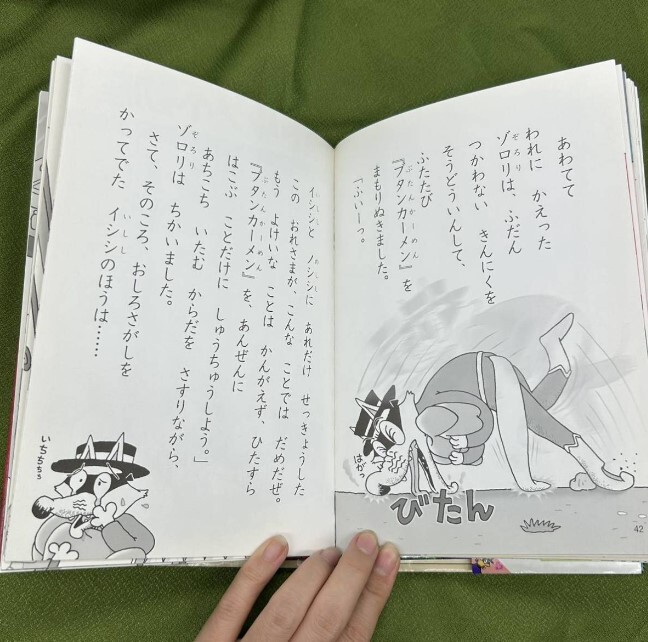 あわてて
われに　かえった
ゾロリは、ふだん
つかわない　きんにくを
そうどういんして、
ふたたび
『ブタンカーメン』を
まもりぬきました。
「ふぃーっ。
はがっ
びたん
42
イシシと　ノシシに　あれだけ　せっきょうした
この　おれさまが、こんな　ことでは　だめだぜ。
もう　よけいな　ことは　かんがえず、ひたすら
『ブタンカーメン』を、あんぜんに
はこぶ　ことだけに　しゅうちゅうしよう。」
あちこち　いたむ　からだを　さすりながら、
ゾロリは　ちかいました。
さて、そのころ、おしろさがしを
かってでた　イシシのほうは……
いちちちぅ